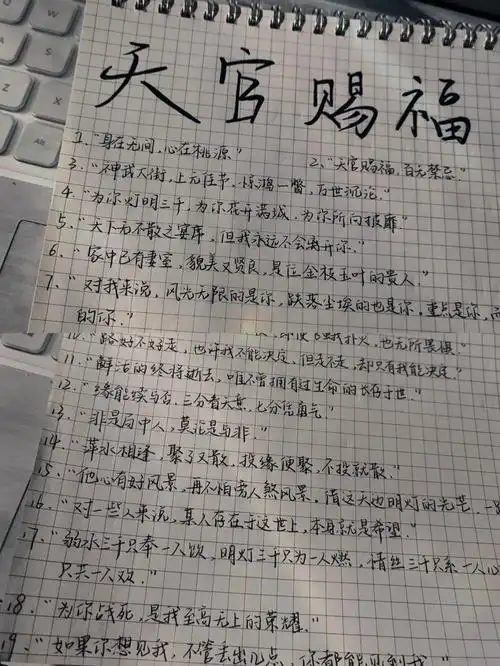 天官赐福
1、"身在无间，心在桃源。"
2、"天官赐福，百无禁忌。"
3、"神武大街，上元佳节，惊鸿一瞥，百世沉沦。"
4、"为你灯明三千，为你花开满城，为你所向披靡
5、"天下无不散之宴席，但我永远不会离开你。"
6、"家中已有妻室，貌美又贤良，是位金枝玉叶的贵人。"
7、"对我来说，风光无限的是你，跌落尘埃的也是你，重点是你，而
的你。"
扑火，也无所畏惧。"
10、"路好不好走，也许我不能决定，但走不走，却只有我能决定。"
11、"鲜活的终将逝去，唯不曾拥有过生命的长存于世。"
12、"缘能续与否，三分看天意，七分凭勇气。"
13、"非是局中人，莫论是与非。"
14、"萍水相逢，聚了又散，投缘便聚，不投就散。"
15、"他心有好风景，再不怕旁人煞风景，借这天边明灯的光芒，一
16、"对一些人来说，某人存在于这世上，本身就是希望。"
17、"弱水三千只奉一人饮，明灯三千只为一人燃，情丝三千只系一人心
只共一人欢。"
18、"为你战死，是我至高无上的荣耀。"
19、"如果你想见我，不管丢出几点，你都能见到我。"